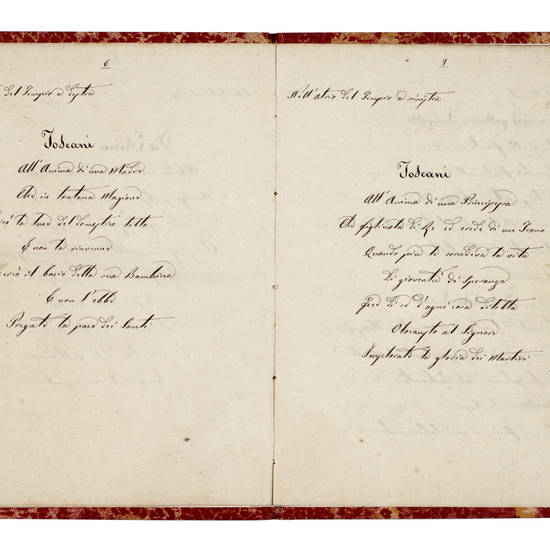 6
del Tempio a destra
Toscani
All'Anima di una Madre
Che in lontana Magione
la pace del domestico tetto
E non la rinvenne
il bacio della sua Bambina
E non l'ebbe
Pregate la pace dei Santi
7
Nell'atrio del Tempio a sinistra
Toscani
All'Anima di una Principessa
Che figliuola di Re ed erede di un Trono
Quando più le sorrideva la vita
Di gioventù di speranze
Fece di se d'ogni cosa diletta
Olocausto al Signore
Implorate la gloria dei Martiri